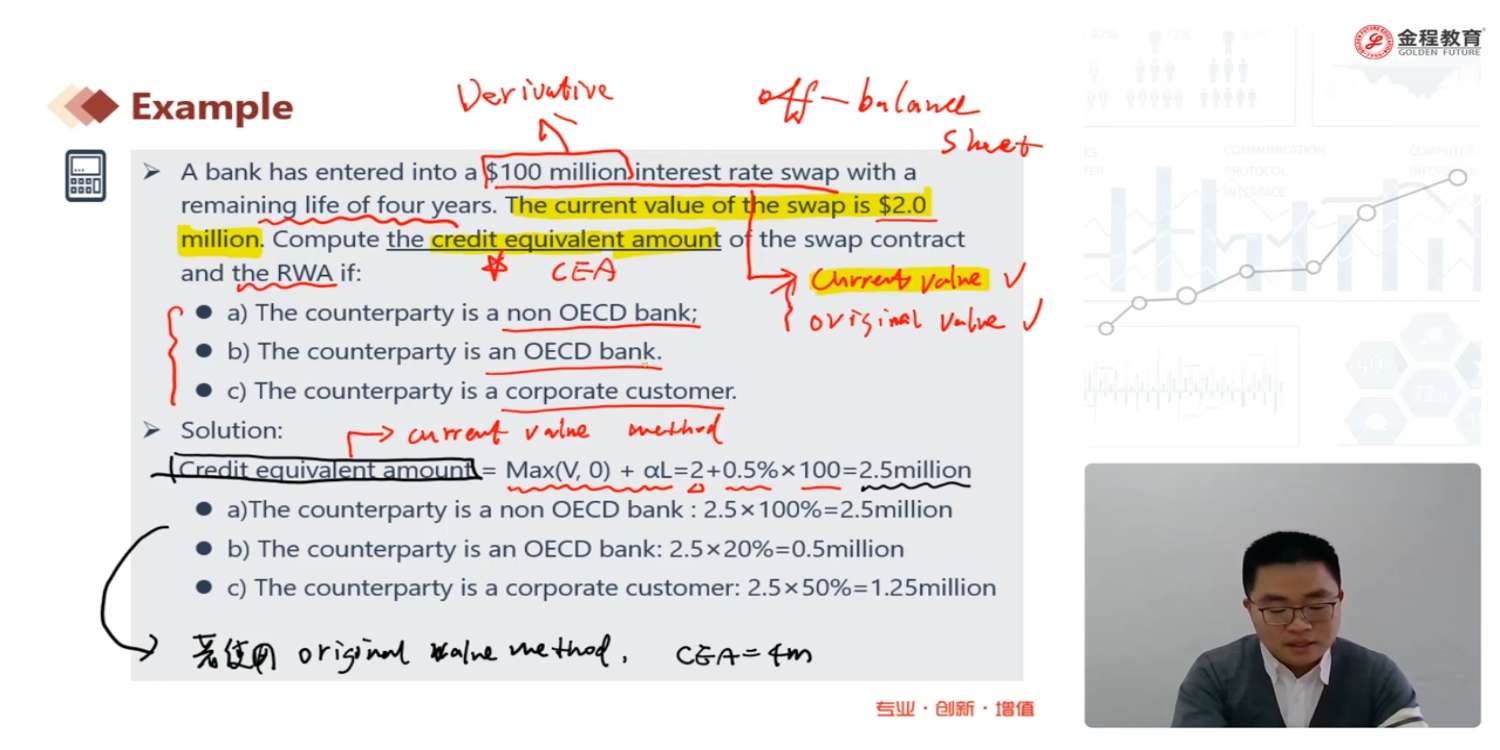 金程教育
GOLDEN FUTURE
Derivative
off-balance
sheet
Example
A bank has entered into a $100 million interest rate swap with a
remaining life of four years. The current value of the swap is $2.0
million. Compute the credit equivalent amount of the swap contract
and the RWA if:
CEA
current value ✓
original value ✓
a) The counterparty is a non OECD bank;
b) The counterparty is an OECD bank.
c) The counterparty is a corporate customer.
Solution:
current value method
Credit equivalent amount = Max(V, 0) + αL=2+0.5%×100=2.5million
a)The counterparty is a non OECD bank : 2.5×100%=2.5million
b) The counterparty is an OECD bank: 2.5×20%=0.5million
c) The counterparty is a corporate customer: 2.5×50%=1.25million
若使用 original value method, CEA=4m
专业·创新·增值
COMMUNICATION
PROTOCOL
INTERFACE